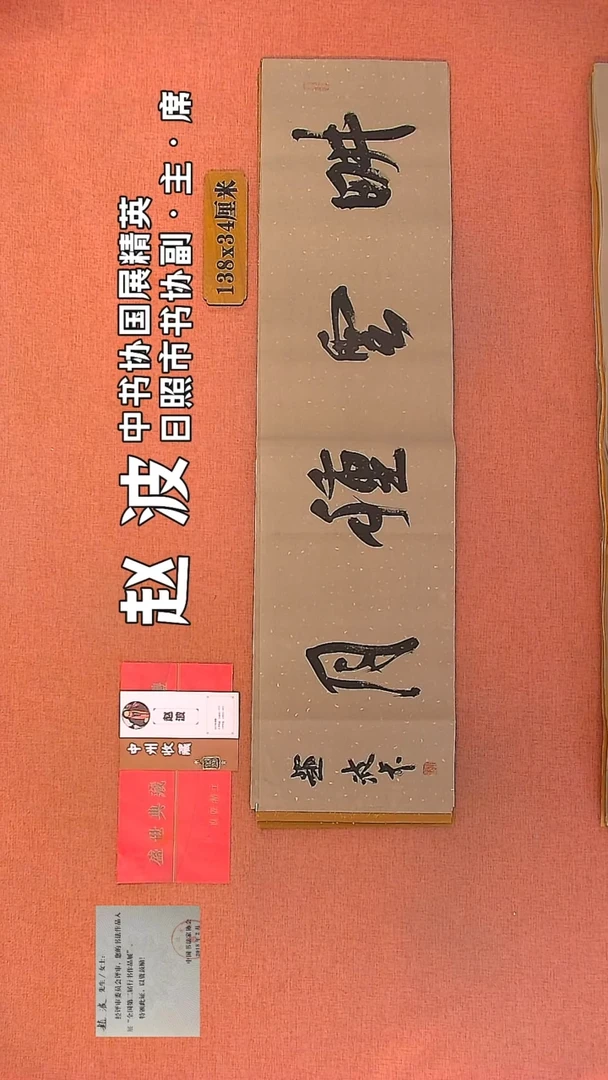 赵波
中书协国展精英
日照市书协副·主·席
138x34厘米
畊雲種月
趙波书
赵波
中州收藏
盛世典藏
赵波 先生/女士:
经评审委员会评审,您的书法作品入
展“全国第二届行书作品展”。
特颁此证,以资鼓励!
中国书法家协会